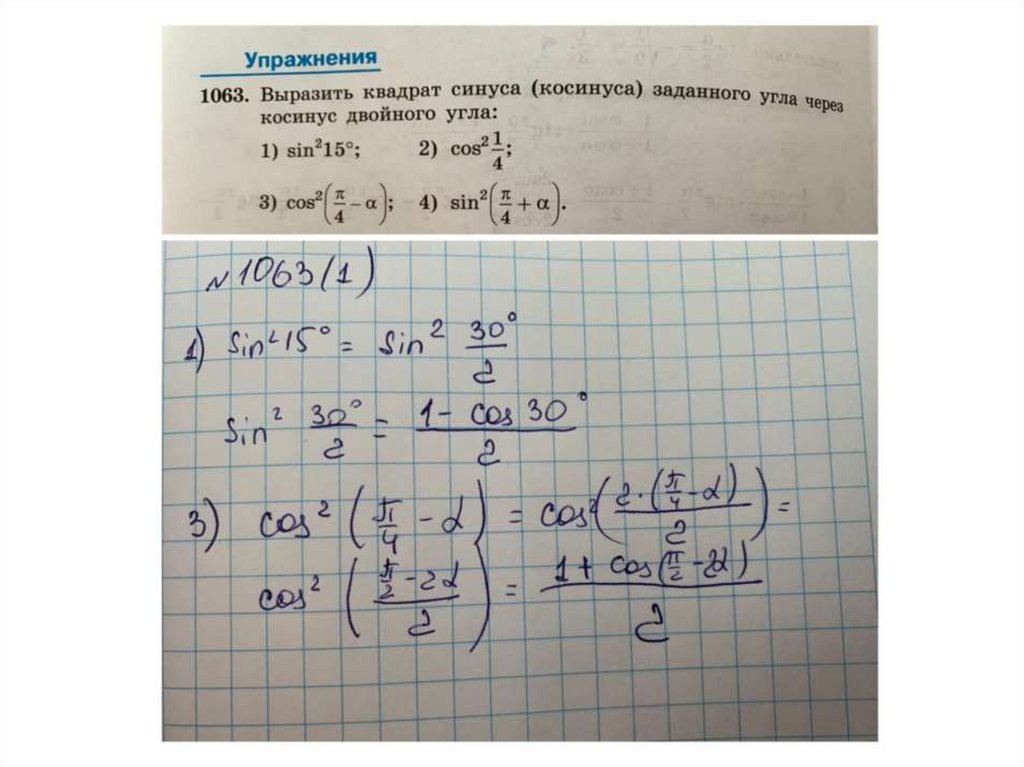 Упражнения
1063. Выразить квадрат синуса (косинуса) заданного угла через
косинус двойного угла:
1) sin²15°; 2) cos² 1/4;
3) cos²(π/4 − α); 4) sin²(π/4 + α).
№1063(1)
1) sin²15° = sin² 30°/2
sin² 30°/2 = (1 − cos 30°)/2
3) cos²(π/4 − α) = cos²((2·(π/4 − α))/2) =
cos²((π/2 − 2α)/2) = (1 + cos(π/2 − 2α))/2